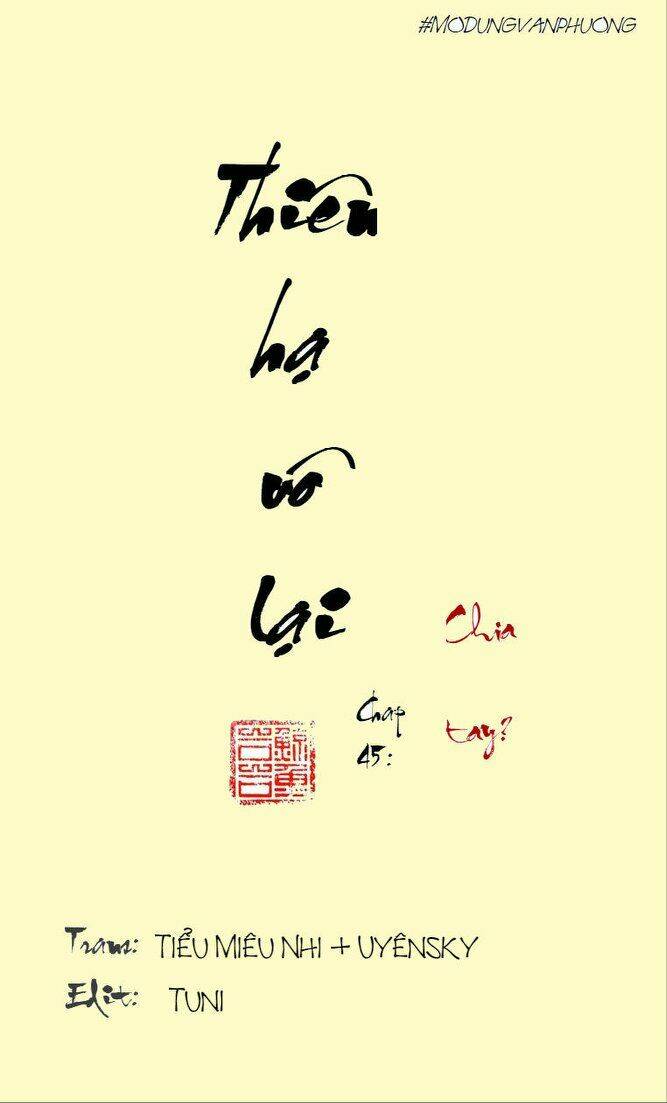 #MODUNGVANPHUONG
Thiên
hạ
vô
lại
Chap
45:
Chia
tay?
Trans: TIỂU MIÊU NHI + UYÊNSKY
Edit: TUNI